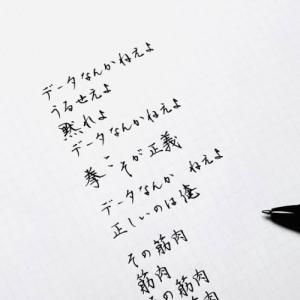 データなんかねえよ
うるせえよ
黙れよ
データなんかねえよ
拳こそが正義
データなんか ねえよ
正しいのは俺
その筋肉
筋肉
の筋肉